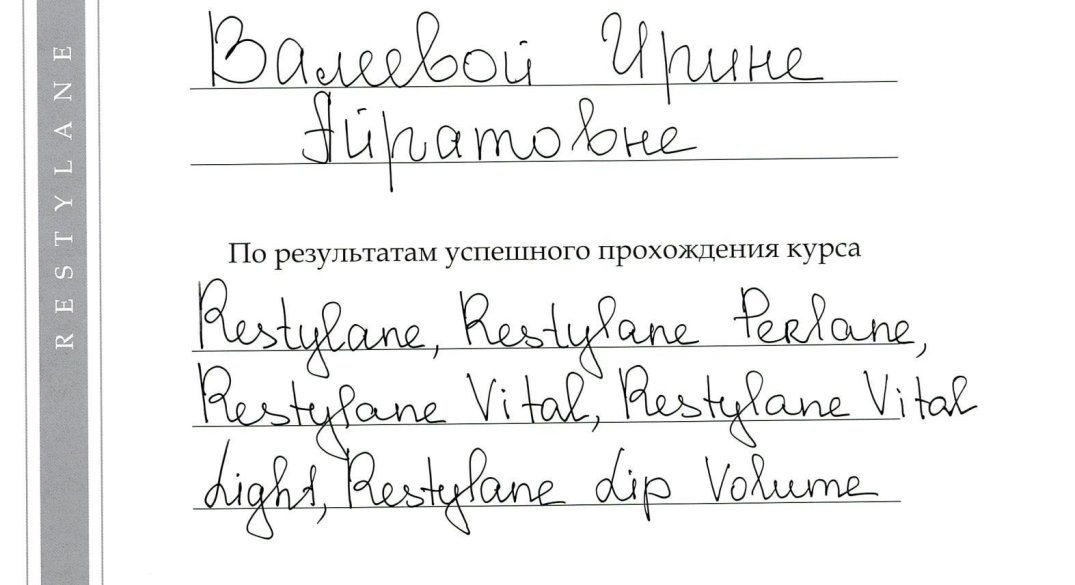 RESTYLANE
Валеевой Ирине
Айратовне
По результатам успешного прохождения курса
Restylane, Restylane Perlane,
Restylane Vital, Restylane Vital
Light, Restylane Lip Volume